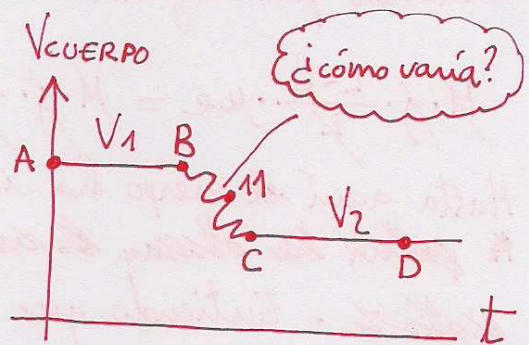 VCUERPO
¿cómo varía?
A
V1
B
11
C
V2
D
t